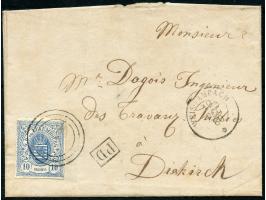 Monsieur
Mr Dagois Ingenieur
des Travaux Publics
à
Diekirch
PD
10 10